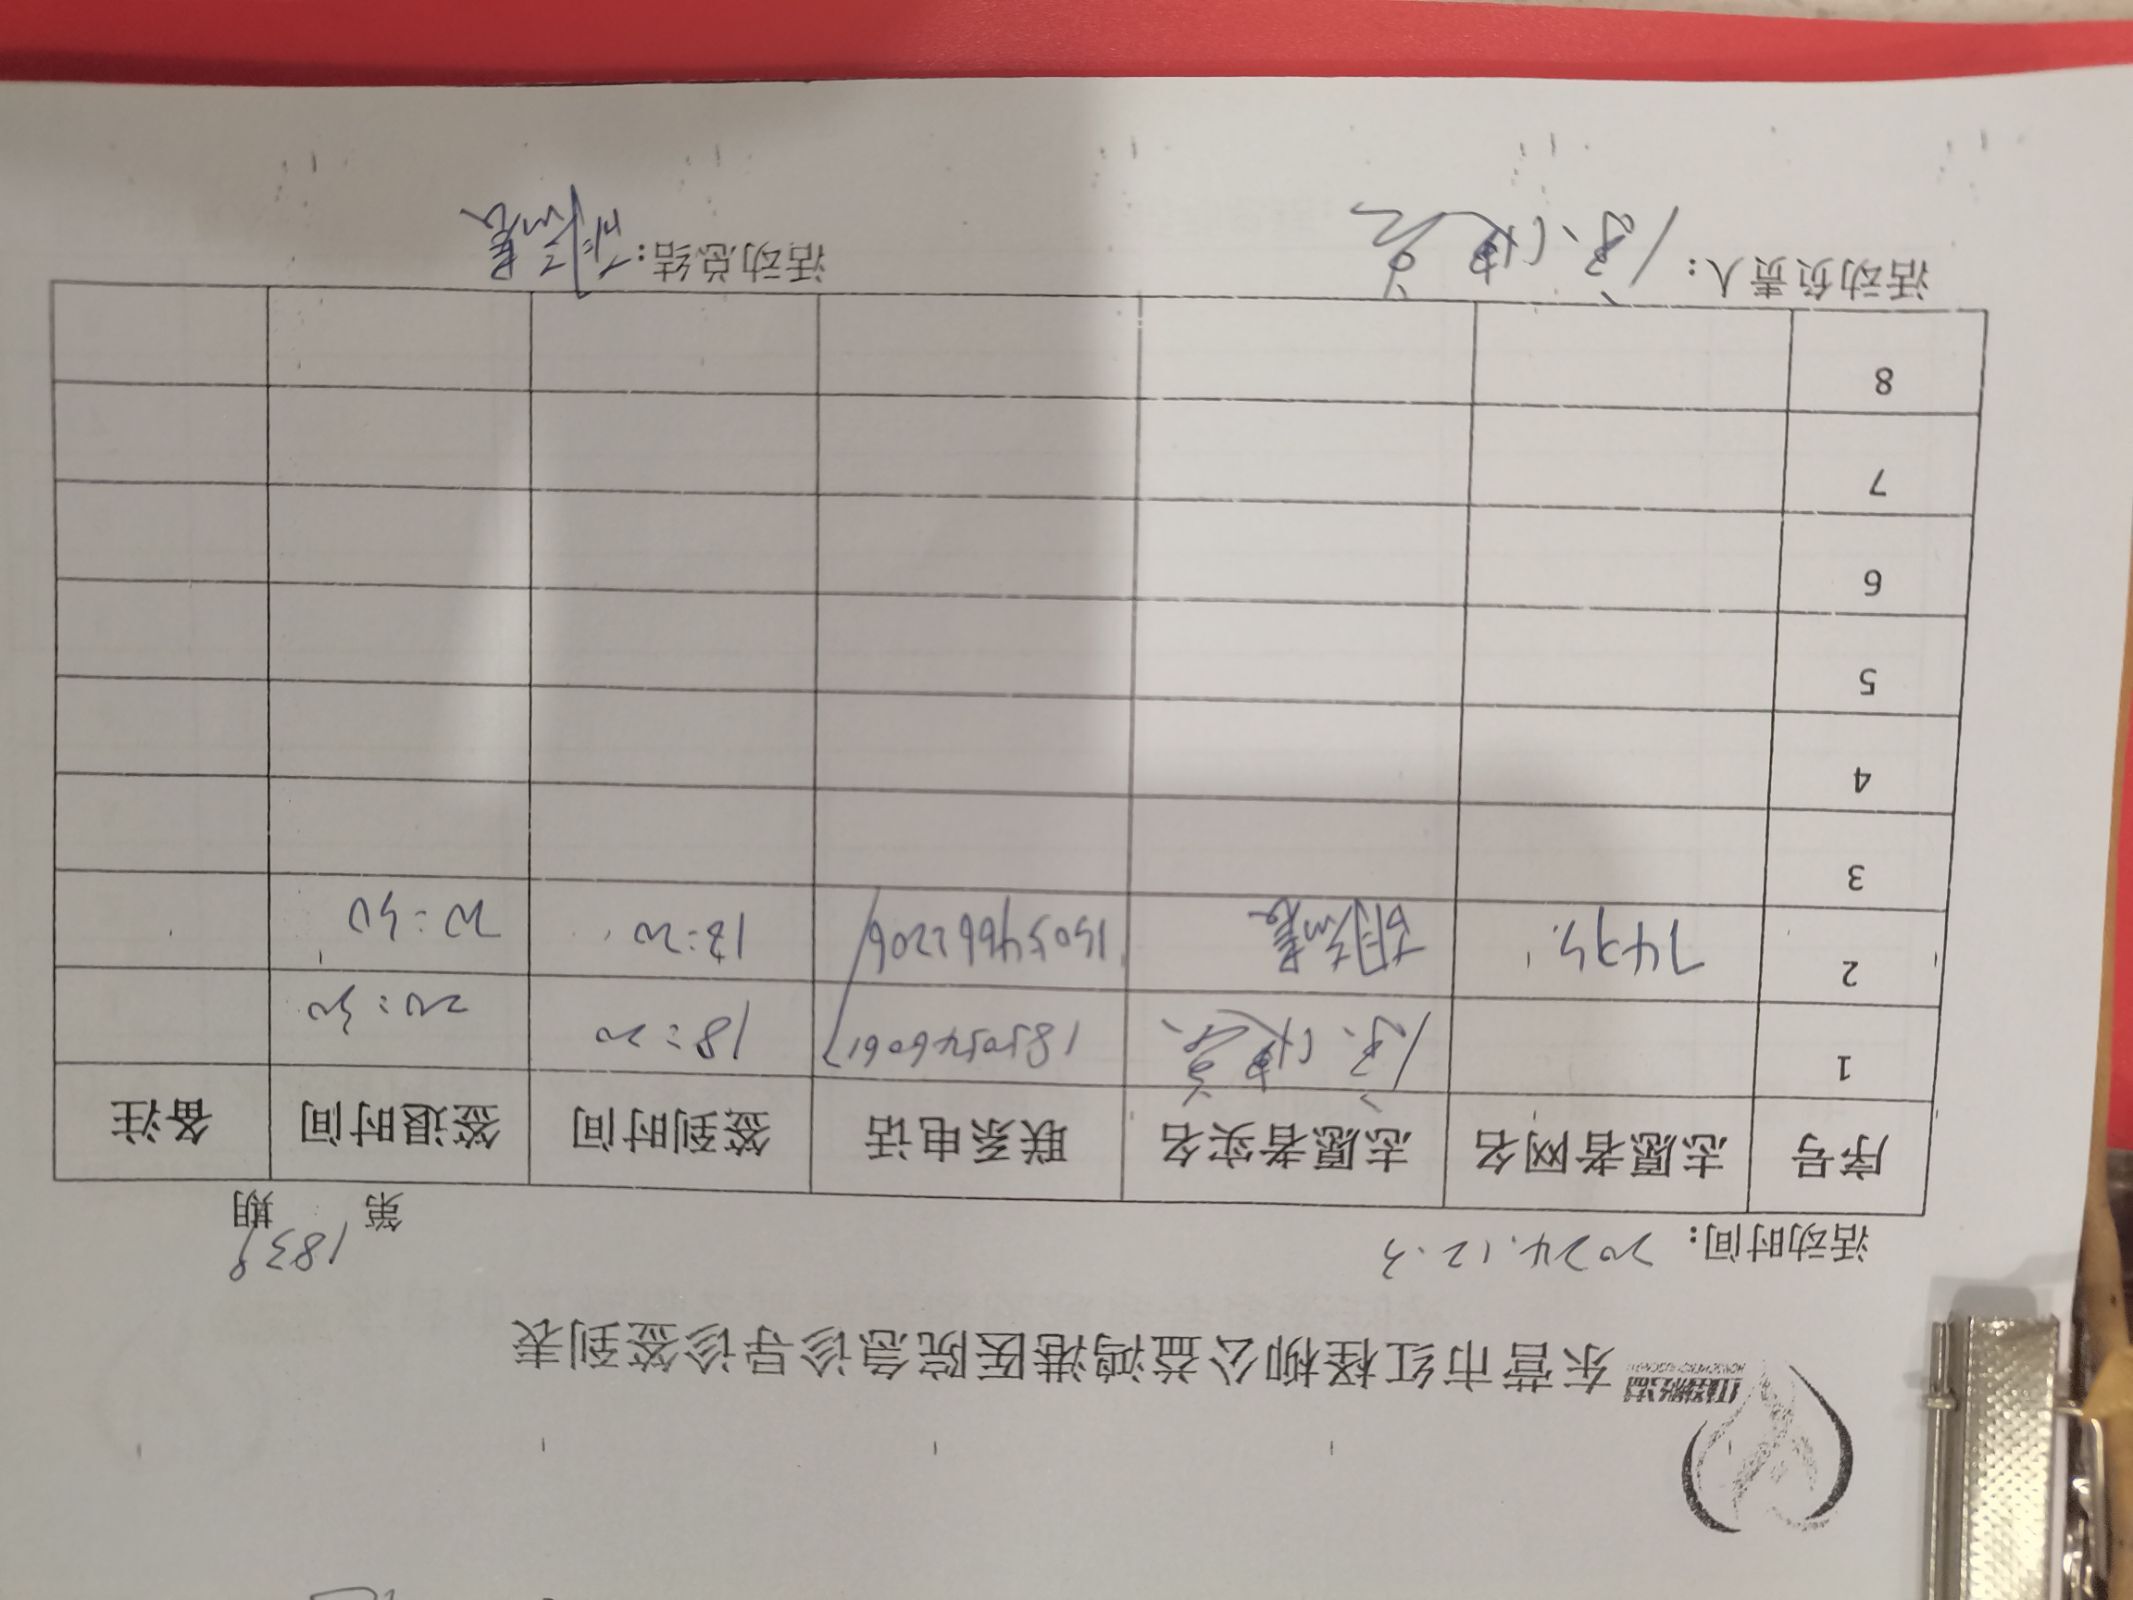 红柽柳公益
东营市红柽柳公益鸿港医院急诊导诊签到表
活动时间：2024.12.3 第1839期
序号 志愿者网名 志愿者实名 联系电话 签到时间 签退时间 备注
1 18505460617 18:20 20:30
2 7475 15054662206 18:20 20:30
3
4
5
6
7
8
活动负责人： 活动总结：